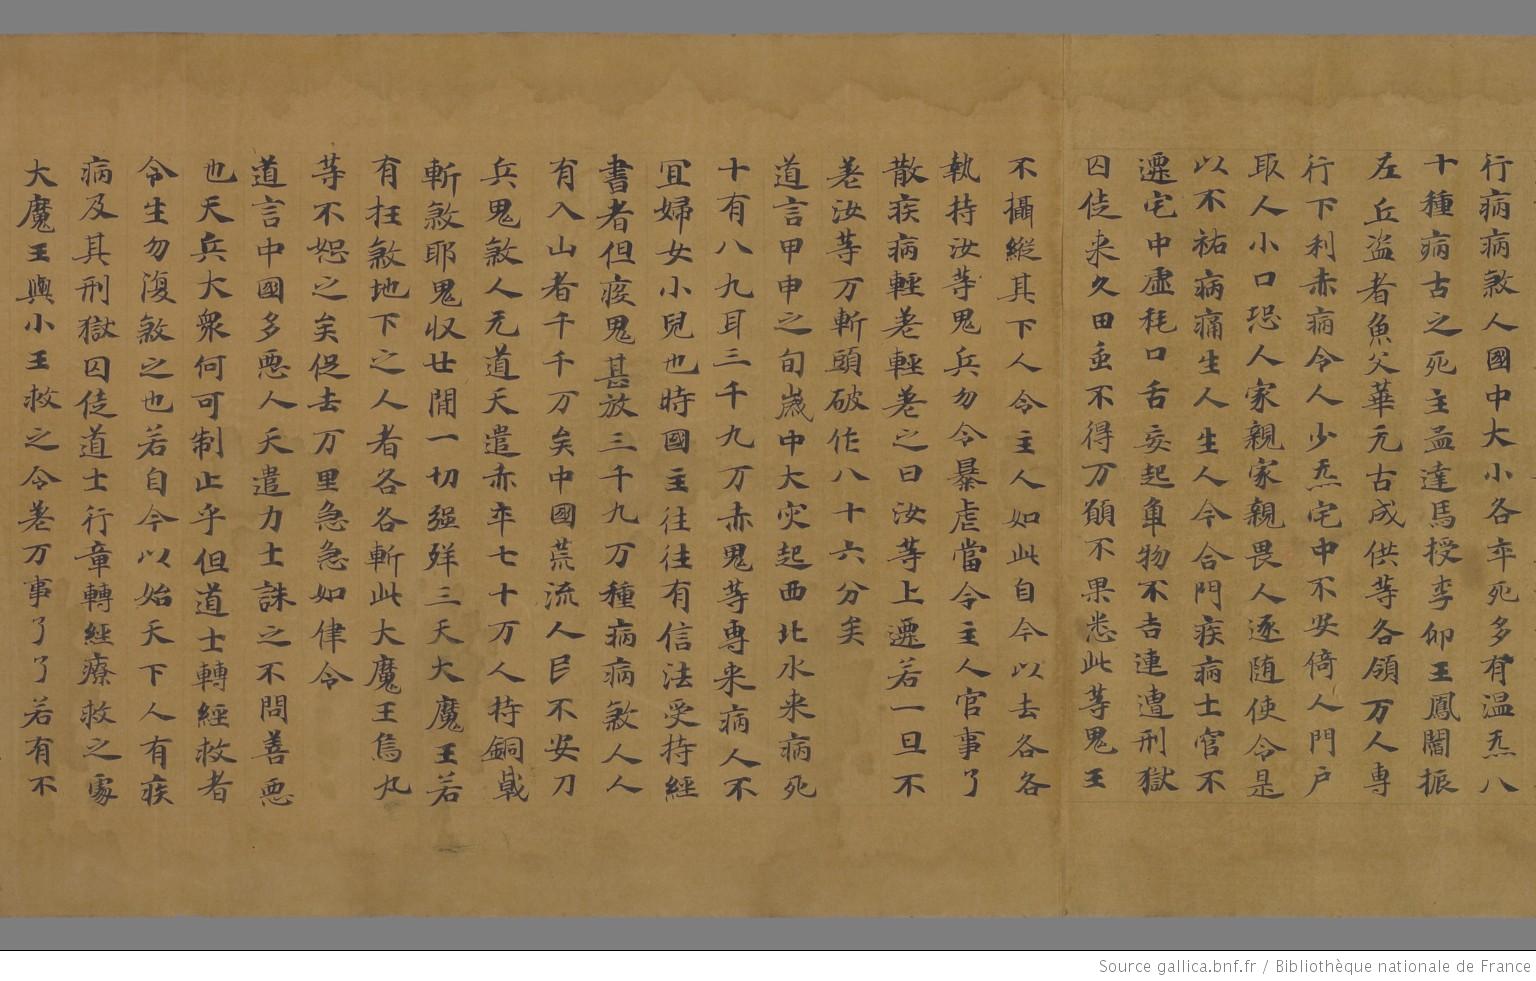 行病病煞人國中大小各卒死多有温炁八
十種病古之死主孟達馬授李仰王鳳闇振
左丘盗者魚父華元古成供等各領万人専
行下利赤病令人少炁宅中不安倚人門户
取人小口恐人家親家親畏人逐随使令是
以不祐病痛生人生人今合門疾病士官不
遷宅中虚耗口舌妄起車物不吉連遭刑獄
囚徒来久田蚕不得万願不果悉此等鬼王
不攝縦其下人令主人如此自今以去各各
執持汝等鬼兵勿令暴虐當令主人官事了
散疾病輕差輕差之日汝等上遷若一旦不
差汝等万斬頭破作八十六分矣
道言甲申之旬嵗中大灾起西北水来病死
十有八九耳三千九万赤鬼等専来病人不
冝婦女小兒也時國主往往有信法受持經
書者但疫鬼甚放三千九万種病病煞人人
有入山者千千万矣中國荒流人民不安刀
兵鬼煞人无道天遣赤卒七十万人持銅戟
斬煞耶鬼収廿閒一切强祥三天大魔王若
有抂煞地下之人者各各斬此大魔王爲丸
等不恕之矣促去万里急急如律令
道言中國多悪人天遣力士誅之不問善悪
也天兵大衆何可制止乎但道士轉經救者
令生勿復煞之也若自今以始天下人有疾
病及其刑獄囚徒道士行章轉經療救之處
大魔王與小王救之令差万事了了若有不
Source gallica.bnf.fr / Bibliothèque nationale de France